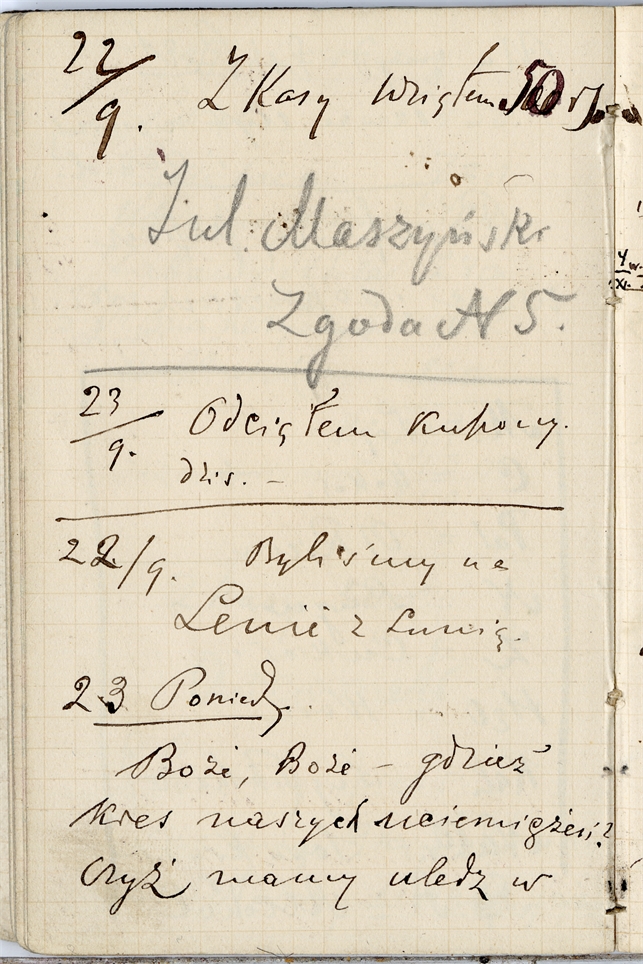 22/9. Z Kasy wziąłem 50 rs.
Jul. Maszyński
Zgoda N 5.
23/9. Odciąłem Kupony.
dziś. –
22/9. Byliśmy na
Lenie z Lunią.
23 Poniedz.
Boże, Boże – gdzież
kres naszych uciemiężeń?
Czyż mamy uledz w